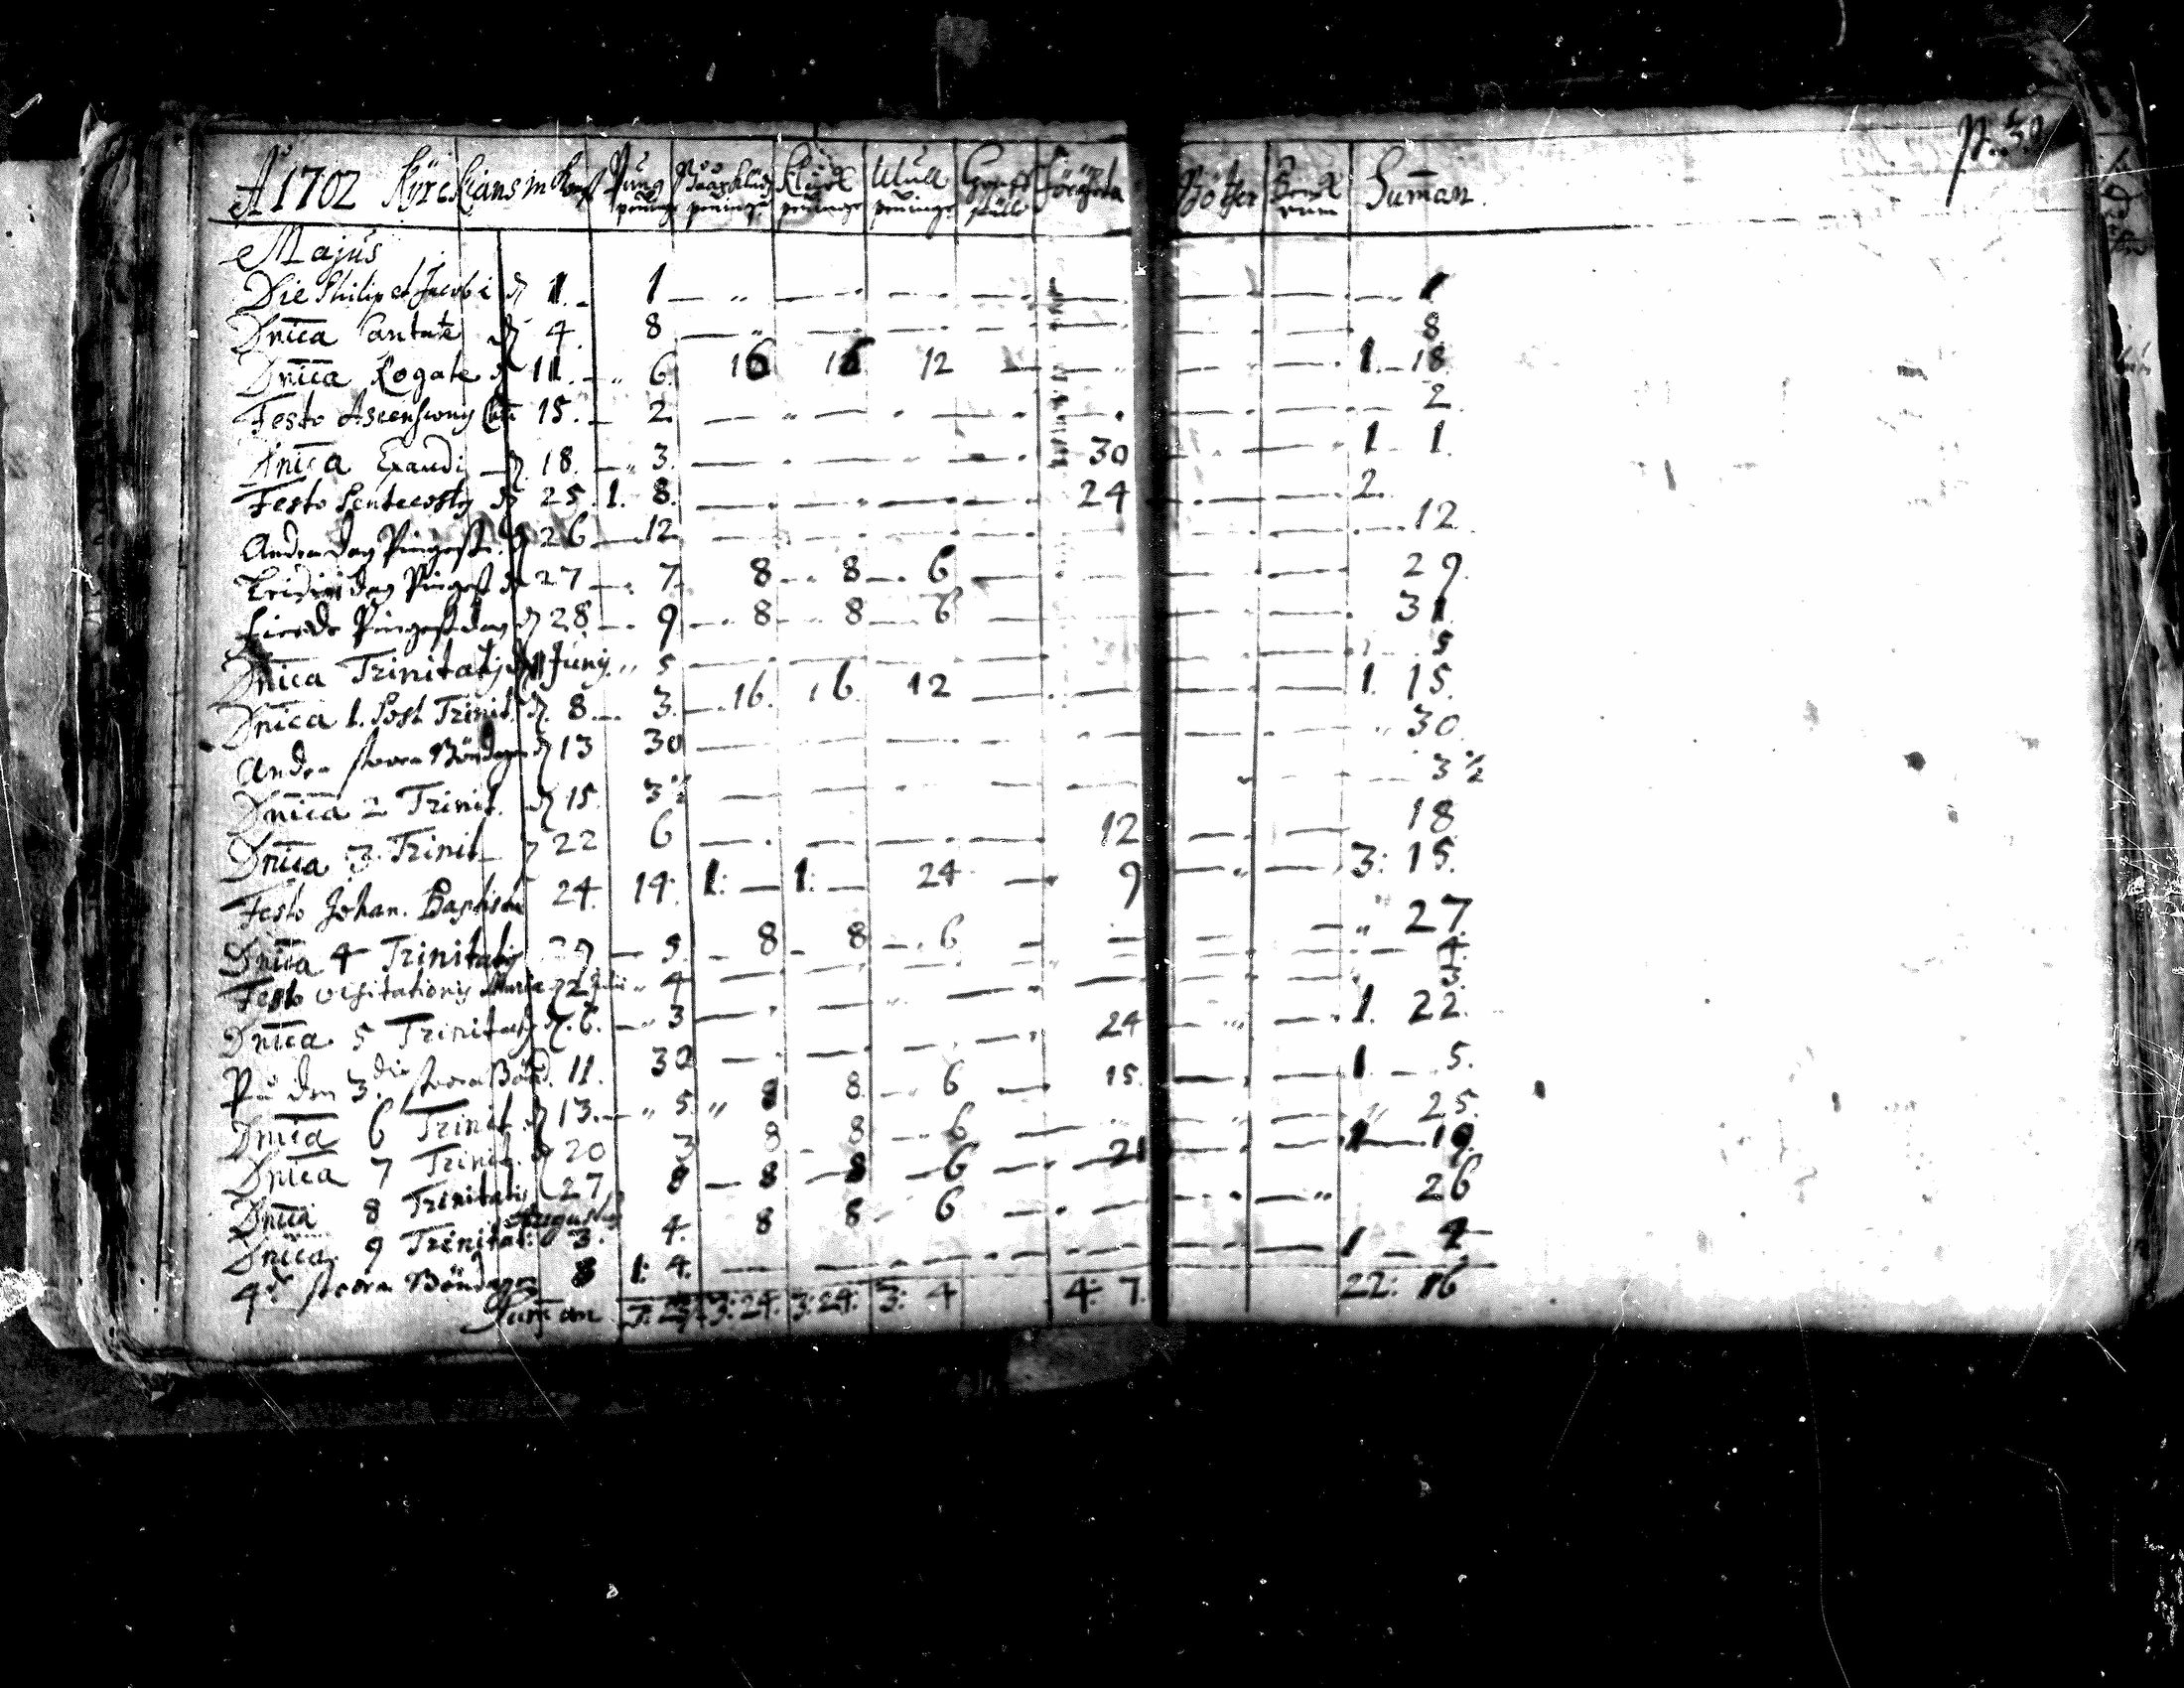 p. 39
Aº 1702 Kyrckians inkomst Pung peninge Baarklädz peninge Klåck peninge Mull peninge Graff Förgäta Böther Banck rum Suman.
Majus
Die Philip et Jacobi d 1. 1 — — — — — — — 1
Dnica Cantate d 4. 8 — — — — — — — 8
Dnica Rogate d 11. 6. 16 16 12 — — — — 1. 18.
Festo Ascensionis 15. 2 — — — — — — — 2.
Dnica Exaudi d 18. 3. — — — — 30 — — 1 1.
Festo Pentecostes d 25. 1. 8. — — — — 24 — — 2.
Andra dag Pingest. d 26 12 — — — — — — — 12.
Tridie dag Pingest d 27 7. 8 8 6 — — — — 29.
Fierde Pingestdag d 28 9 8 8 6 — — — — 31.
Dnica Trinitatis d 1 Junij 5 — — — — — — — 5
Dnica 1. Post Trinit. d. 8 3. 16. 16. 12 — — — — 1. 15.
Andra stora Böndagen d 13 30 — — — — — — — 30.
Dnica 2 Trinit. d 15. 3½ — — — — — — — 3½
Dnica 3. Trinit d 22 6 — — — — 12 — — 18.
Festo Johan. Baptistæ 24. 14. 1: — 1: — 24 — 9 — — 3: 15.
Dnica 4 Trinitatis 29 5 8 8 6 — — — — 27.
Festo Visitationis Mariæ d 2 Julii 4 — — — — — — — 4.
Dnica 5 Trinitatis d. 6. 3 — — — — — — — 3.
På den 3. die stora Bönd. 11. 30 — — — — 24 — — 1. 22.
Dnica 6 Trinit. d 13. 5 8 8. 6 — 15. — — 1. 5.
Dnica 7 Trinit. d 20 3 8 8 6 — — — — 25.
Dnica 8 Trinitatis 27 8 8 8 6 — 21 — — 1 19.
Augustus
Dnica 9 Trinitat: 3. 4. 8 8 6 — — — — 26
4 stora Böndagen 8 1: 4. — — — — — — — 1 4
Suman 7: 23. 3: 24. 3: 24. 3: 4 4: 7. 22: 16